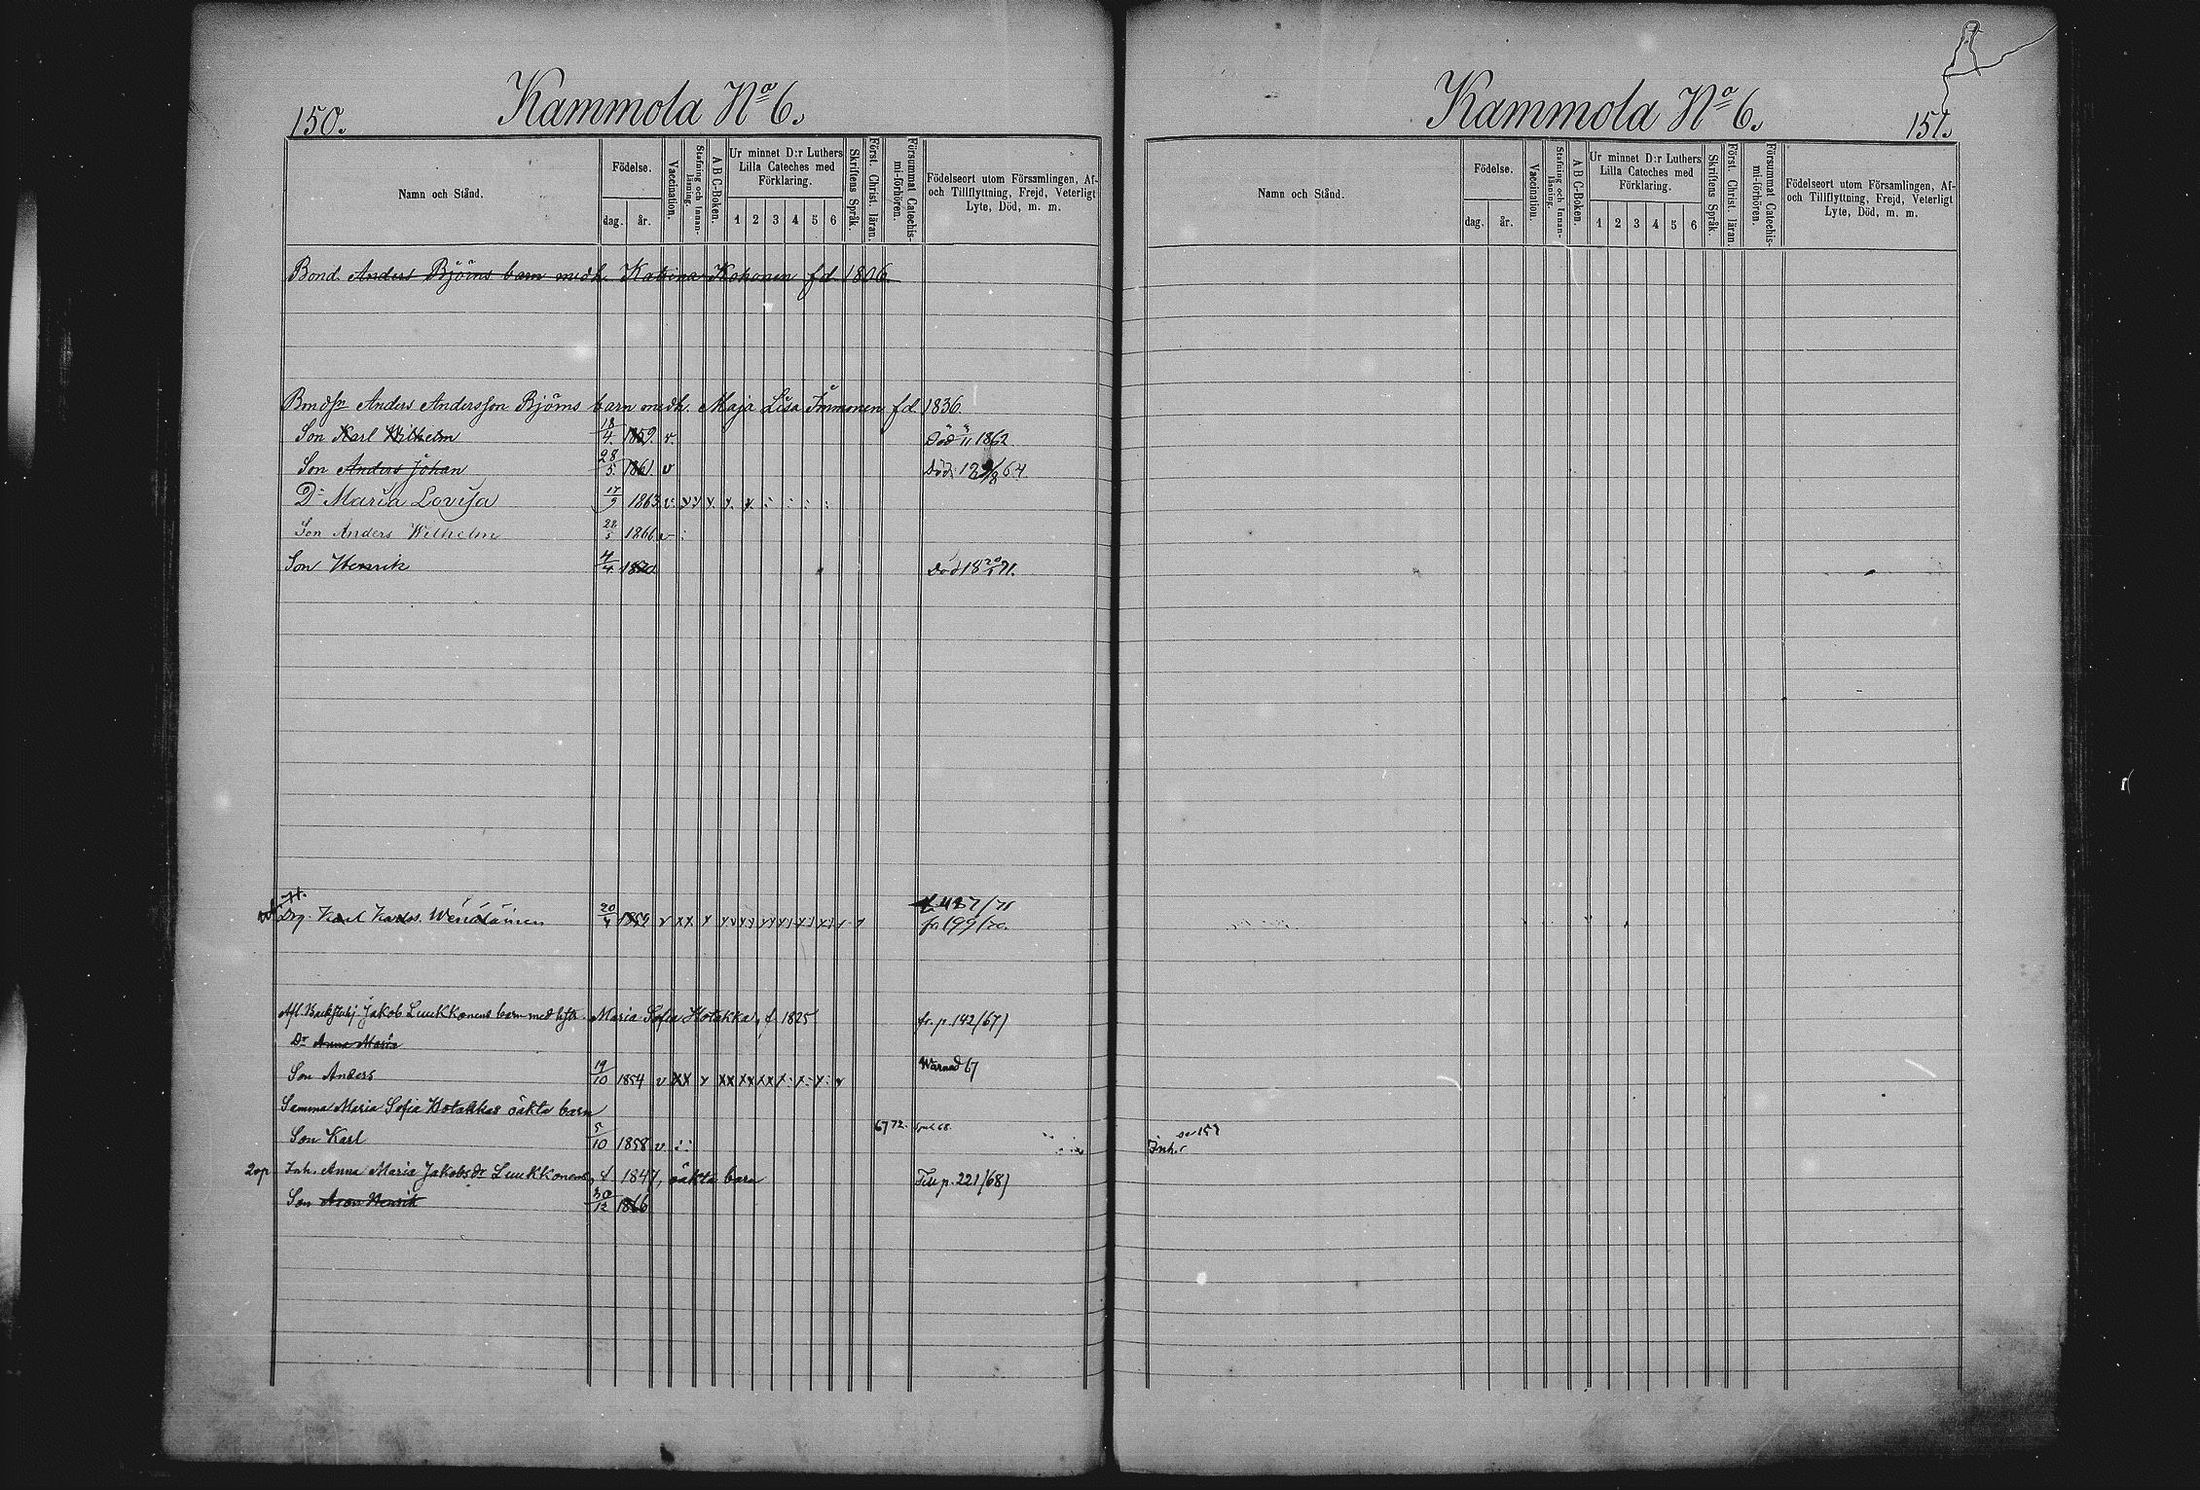 150.
Kammola No 6.
Namn och Stånd.
Födelse.
dag.
år.
Vaccination.
Stafning och Innanläsning.
A B C-Boken.
Ur minnet D:r Luthers Lilla Cateches med Förklaring.
1 2 3 4 5 6
Skriftens Språk.
Först. Christ. läran.
Försummat Catechismi-förhören.
Födelseort utom Församlingen, Af- och Tillflyttning, Frejd, Veterligt Lyte, Död, m. m.
Bond. Anders Björns barn medh. Katrina Kokonen fd 1806.
Bondsn Anders Andersson Björns barn medh. Maja Lisa Immonen fd 1836.
Son Karl Wilhelm 18/4. 1859. v. Död 11 1862
Son Anders Johan 28/5. 1861. v Död 64
Dr Maria Lovisa 17/9 1863 v
Son Anders Wilhelm 28/5 1866 v
Son Henrik 4/4 1870 Död 18 71.
Drg. Karl Karlss. Wendäinen 20/4 1859 v
fr 199/70.
Afl. Backstuhj. Jakob Luukkonens barn med hftr. Maria Sofia Hotakka, f 1825 fr. p. 142/67)
Dr Anna Maria
Son Anders 19/10 1854 v Warnad 67
Samma Maria Sofia Hotakkas oäkta barn
Son Karl 5/10 1858 v 67 72.
Inh. Anna Maria Jakobsdr Luukkonens, f 1847, oäkta barn Till p. 221/68)
Son Aron Henrik 30/12 1866
Kammola No 6.
151.
Namn och Stånd.
Födelse.
dag.
år.
Vaccination.
Stafning och Innanläsning.
A B C-Boken.
Ur minnet D:r Luthers Lilla Cateches med Förklaring.
1 2 3 4 5 6
Skriftens Språk.
Först. Christ. läran.
Försummat Catechismi-förhören.
Födelseort utom Församlingen, Af- och Tillflyttning, Frejd, Veterligt Lyte, Död, m. m.
Inh.